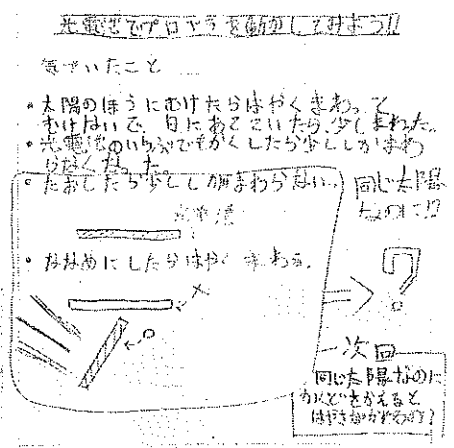 光電池でプロペラを動かしてみよう!!
気づいたこと
・太陽のほうにむけたらはやくまわって
むけないで、日にあてていたら、少しまわった。
・光電池のいちぶでもかくしたら少ししかまわ
らなくなった。
・たおしたら少ししかまわらない。
同じ太陽
なのに!?
光電池
・ななめにしたらはやくまわる。
×
○
?
次回
同じ太陽なのに
かくどをかえると
はやさがかわるの?